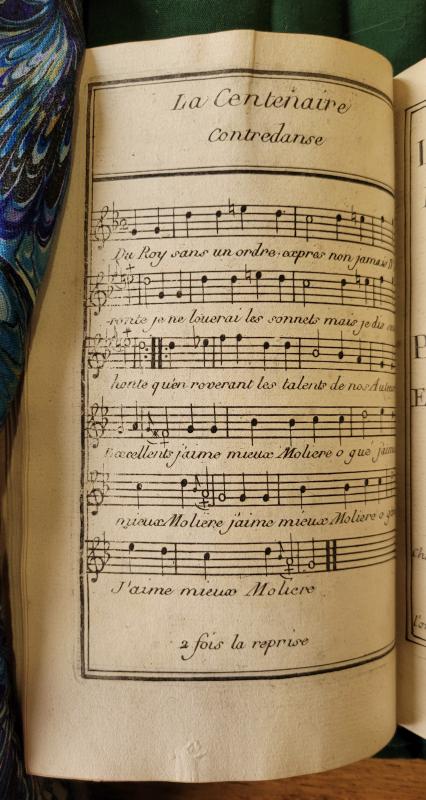 La Centenaire
Contredanse
Du Roy sans un ordre expres non jamais
ronte je ne louerai les sonnets mais je dis
honte qu'en roverant les talents de nos Auteur
Excellents j'aime mieux Moliere o gué j'aime
mieux Moliere j'aime mieux Moliere o
J'aime mieux Moliere
2 fois la reprise